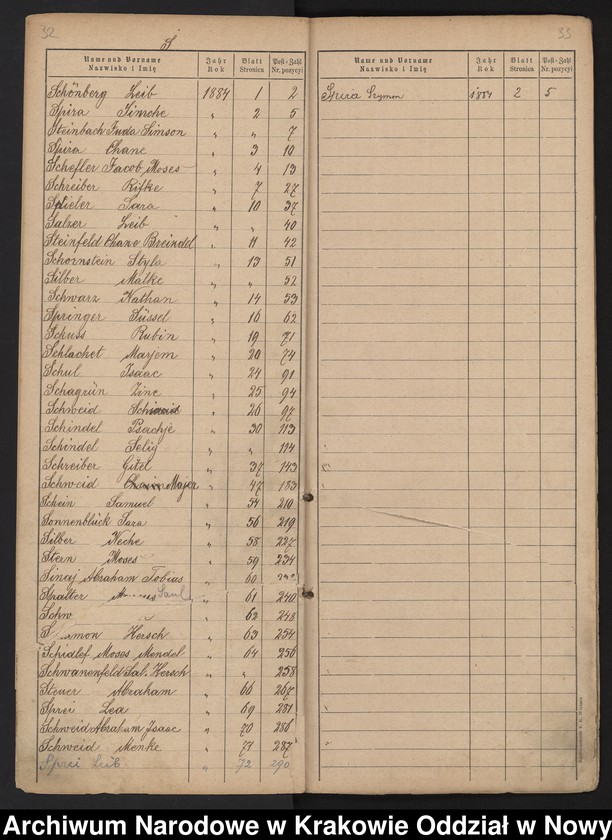 32
S
Name und Vorname Jahr Blatt Post-Zahl
Nazwisko i Imię Rok Stronica Nr. pozycyi
Schönberg Leib 1884 1 2
Spira Simche " 2 5
Steinbach Juda Simson " " 7
Spira Chane " 3 10
Schefler Jacob Moses " 4 13
Schreiber Rifke " 7 27
Spieler Sara " 10 37
Salzer Leib " " 40
Steinfeld Chane Breindel " 11 42
Schornstein Styla " 13 51
Silber Malke " " 52
Schwarz Nathan " 14 53
Springer Süssel " 16 62
Schuss Rubin " 19 71
Schlachet Marjem " 20 74
Schul Isaac " 24 91
Schagrün Zine " 25 94
Schweid " 26 97
Schindel Psachje " 30 113
Schindel Selig " " 114
Schreiber Gitel " 37 143
Schweid Chaim Majer " 47 183
Schein Samuel " 54 210
Sonnenblück Sara " 56 219
Silber Neche " 58 227
Stern Moses " 59 234
Sinaj Abraham Tobius " 60
Spalter Saul " 61 240
Schw " 62 248
S mon Hersch " 63 254
Schidlef Moses Mendel " 64 256
Schwanenfeld Sal. Hersch " " 258
Steuer Abraham " 66 267
Sprei Lea " 69 281
Schweid Abraham Isaac " 70 286
Schweid Menke " 71 287
Sprei Leib " 72 290
33
Name und Vorname Jahr Blatt Post-Zahl
Nazwisko i Imię Rok Stronica Nr. pozycyi
Spira Szymon 1884 2 5
Archiwum Narodowe w Krakowie Oddział w Nowy